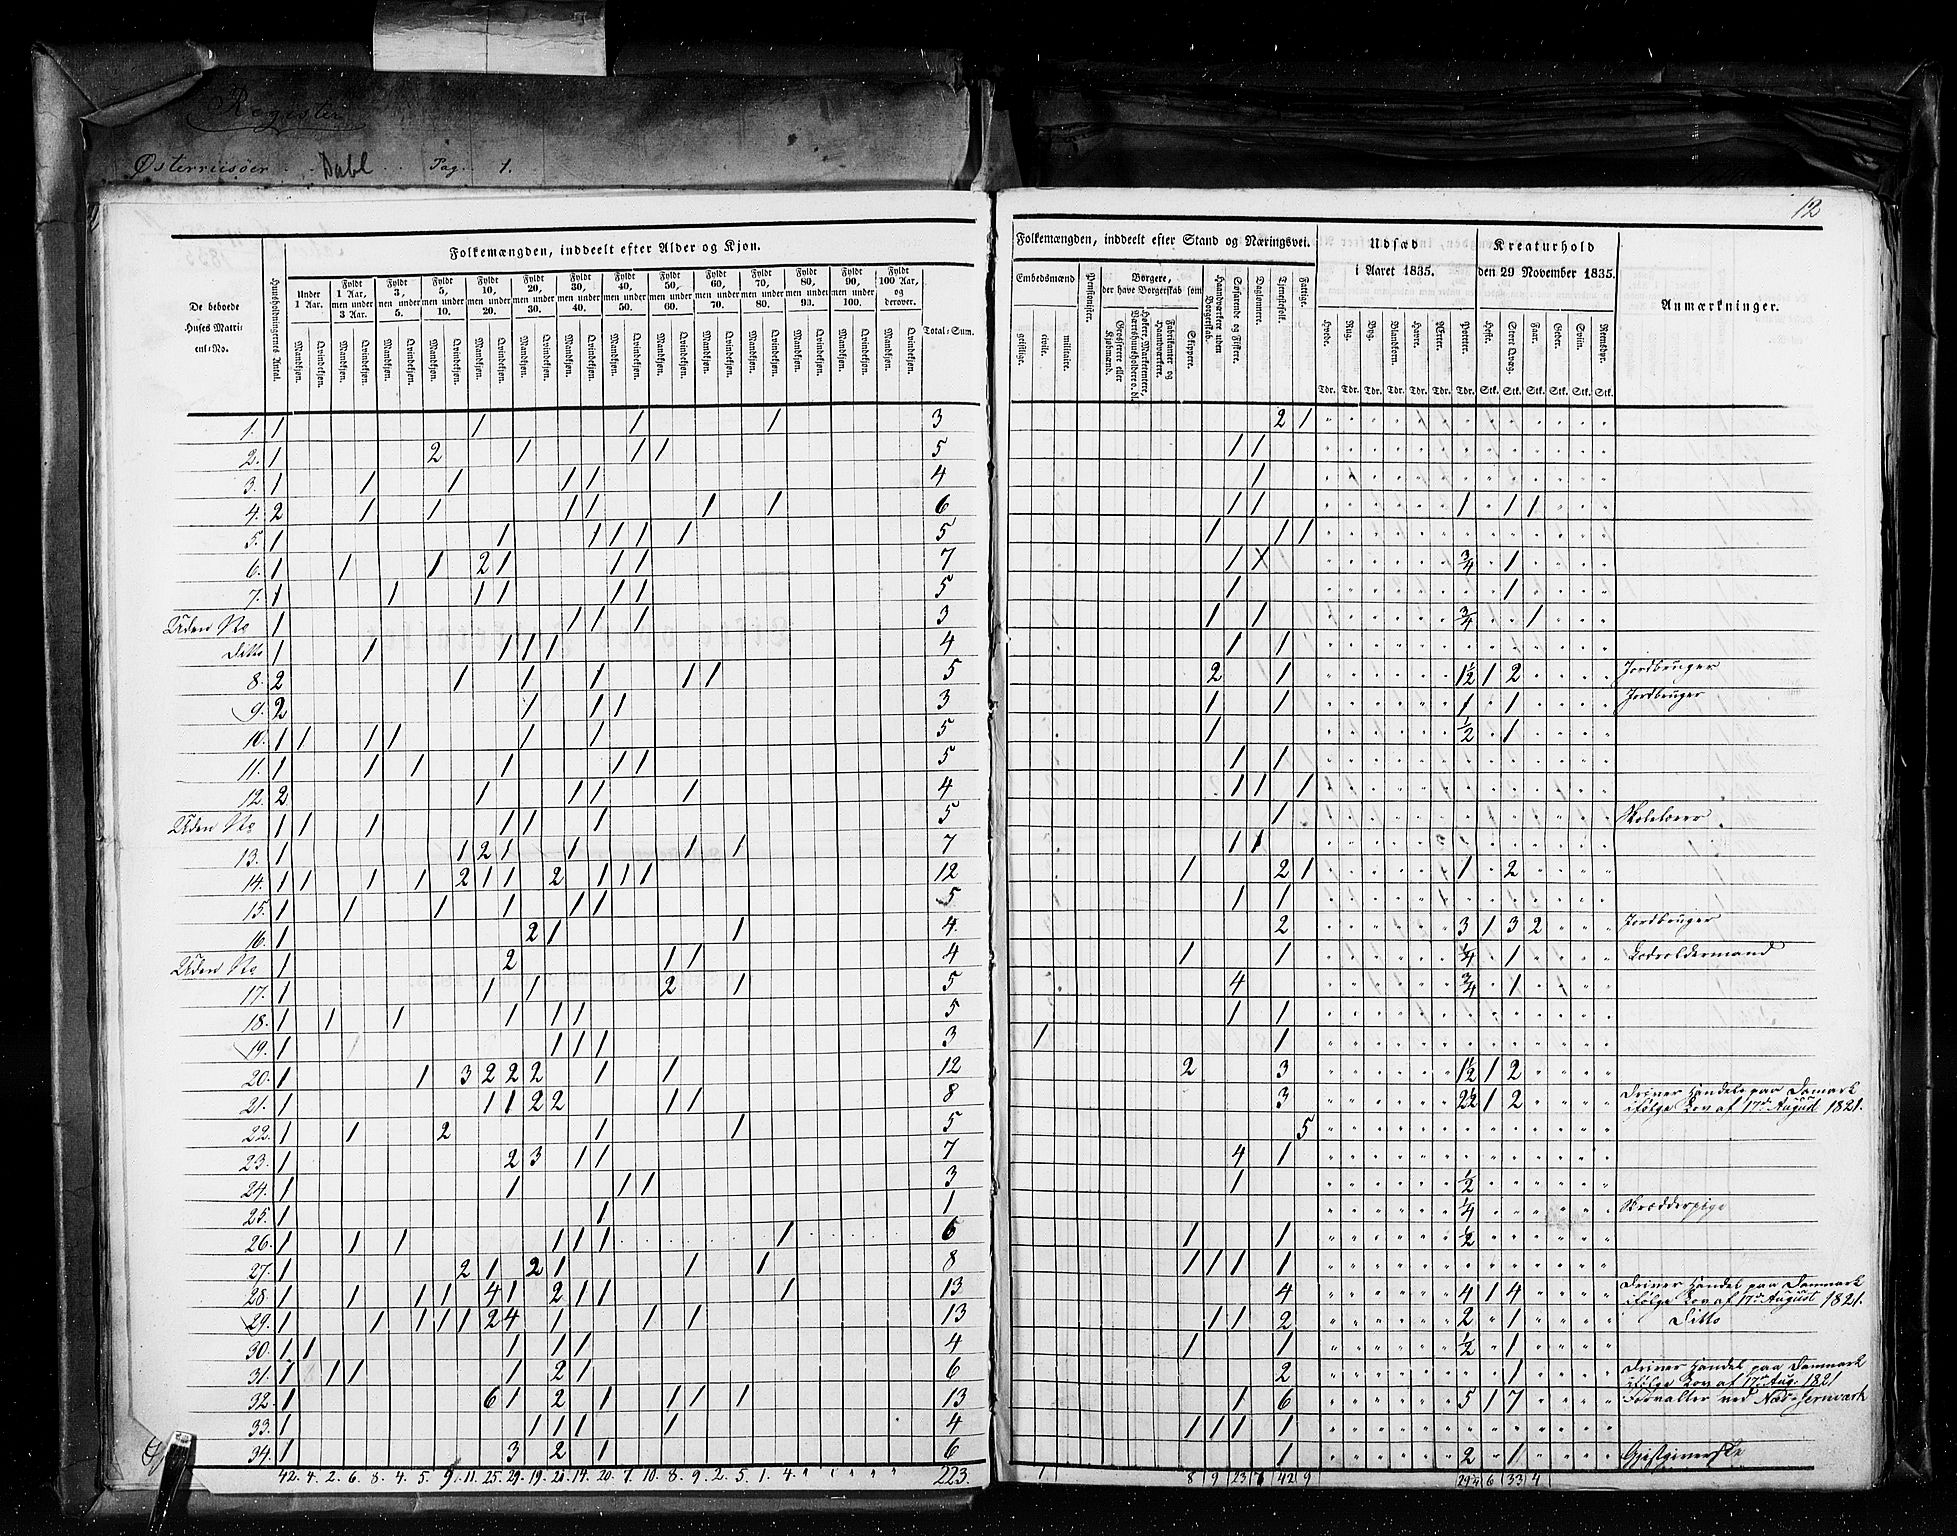 Register
Østerriisøer . . Dahl . . . Pag. 1.
12
Folkemængden, inddeelt efter Alder og Kjøn.
De beboede Huses Matricul-No.
Huusholdningernes Antal.
Under 1 Aar.
Fyldt 1 Aar, men under 3 Aar.
Fyldt 3, men under 5.
Fyldt 5, men under 10.
Fyldt 10, men under 20.
Fyldt 20, men under 30.
Fyldt 30, men under 40.
Fyldt 40, men under 50.
Fyldt 50, men under 60.
Fyldt 60, men under 70.
Fyldt 70, men under 80.
Fyldt 80, men under 90.
Fyldt 90, men under 100.
Fyldt 100 Aar, og derover.
Total-Sum.
Mandkjøn. Qvindekjøn. Mandkjøn. Qvindekjøn. Mandkjøn. Qvindekjøn. Mandkjøn. Qvindekjøn. Mandkjøn. Qvindekjøn. Mandkjøn. Qvindekjøn. Mandkjøn. Qvindekjøn. Mandkjøn. Qvindekjøn. Mandkjøn. Qvindekjøn. Mandkjøn. Qvindekjøn. Mandkjøn. Qvindekjøn. Mandkjøn. Qvindekjøn. Mandkjøn. Qvindekjøn. Mandkjøn. Qvindekjøn.
1. 1 1 1 1 3
2. 1 2 1 1 1 5
3. 1 1 1 1 1 4
4. 2 1 1 1 1 1 1 6
5. 1 1 1 1 1 1 5
6. 1 1 1 2 1 1 1 7
7. 1 1 1 1 1 1 5
Uden No 1 1 1 1 3
Ditto 1 1 1 1 1 4
8. 2 1 1 1 1 1 5
9. 2 1 1 1 3
10. 1 1 1 1 1 1 5
11. 1 1 1 1 1 1 5
12. 2 1 1 1 1 4
Uden No 1 1 1 1 1 1 5
13. 1 1 2 1 1 1 1 7
14. 1 1 1 1 2 1 1 2 1 1 1 12
15. 1 1 1 1 1 1 5
16. 1 2 1 1 4
Uden No 1 2 1 1 4
17. 1 1 1 2 1 5
18. 1 1 1 1 1 1 5
19. 1 1 1 1 3
20. 1 1 3 2 2 2 1 1 12
21. 1 1 1 2 2 1 1 8
22. 1 1 2 1 1 5
23. 1 2 3 1 1 7
24. 1 1 1 1 3
25. 1 1 1
26. 1 1 1 1 1 1 1 6
27. 1 2 1 2 1 1 1 8
28. 1 1 1 1 4 1 2 1 1 1 13
29. 1 1 1 1 1 2 4 1 1 1 13
30. 1 1 1 1 1 4
31. 1 1 1 1 2 1 6
32. 1 6 1 2 1 1 1 1 13
33. 1 1 1 1 1 4
34. 1 3 2 1 6
42. 4. 2. 6. 8. 4. 5. 9. 11. 25. 29. 19. 21. 14. 20. 7. 10. 8. 9. 2. 5. 1. 4. " " " " " 223.
Folkemængden, inddeelt efter Stand og Næringsvei.
Udsæd i Aaret 1835.
Kreaturhold den 29 November 1835.
Anmærkninger.
Embedsmænd
geistlige. civile. militaire.
Pensionister.
Borgere, der have Borgerskab som
Grosserere eller Kjøbmænd.
Høkere, Marketentere, Værtshuusholdere o. dl.
Fabrikanter og Haandværkere.
Skippere.
Haandværkere uden Borgerskab.
Søfarende og Fiskere.
Daglønnere.
Tjenestefolk.
Fattige.
Hvede. Rug. Byg. Blandkorn. Havre. Ærter. Poteter. Heste. Stort Qvæg. Faar. Geder. Sviin. Rensdyr.
Tdr. Tdr. Tdr. Tdr. Tdr. Tdr. Tdr. Stk. Stk. Stk. Stk. Stk. Stk.
2 1
1 1
1
1 1 1 1 1
1 1 1
1 X 3/4 1
1 1
1 1 3/4 1
1 1
2 1 1½ 1 2 Jordbruger
1 1 1 1 Jordbruger
1 ½ 1
1 1
1 1 1
1 Skolelærer
1 1
1 2 1 1 2
1 1
2 3 1 3 2 Jordbruger
1 1 ¼ 1 Lodsoldermand
4 3/4 1
1 1
1 1
2 3 1½ 1 2
3 2½ 1 2 Driver Handel paa Danmark ifølge Lov af 17de August 1821.
5
4 1
1 ½
¼ Skrædderpige
1 1 ½
1 1 1 1
4 4 1 4 Driver Handel paa Danmark ifølge Lov af 17de August 1821.
1 1 2 2 1 Ditto
1 1 ½ 1
2 1 Driver Handel paa Danmark ifølge Lov af 17de Aug. 1821
1 6 5 1 7 Forvalter ved Næs Jernværk
1 1 1 1
1 2 1 Gjestgiverske
1 8 9 23 7 42 9 29¼ 6 33 4